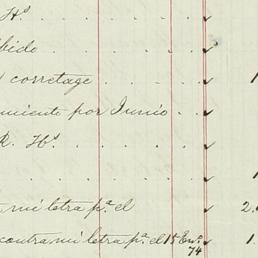 Hs
bido
corretage
miento por Junio
R. Hs
mi letra pa. el 2.
contra mi letra pa. el 15 Eno. 74 1.